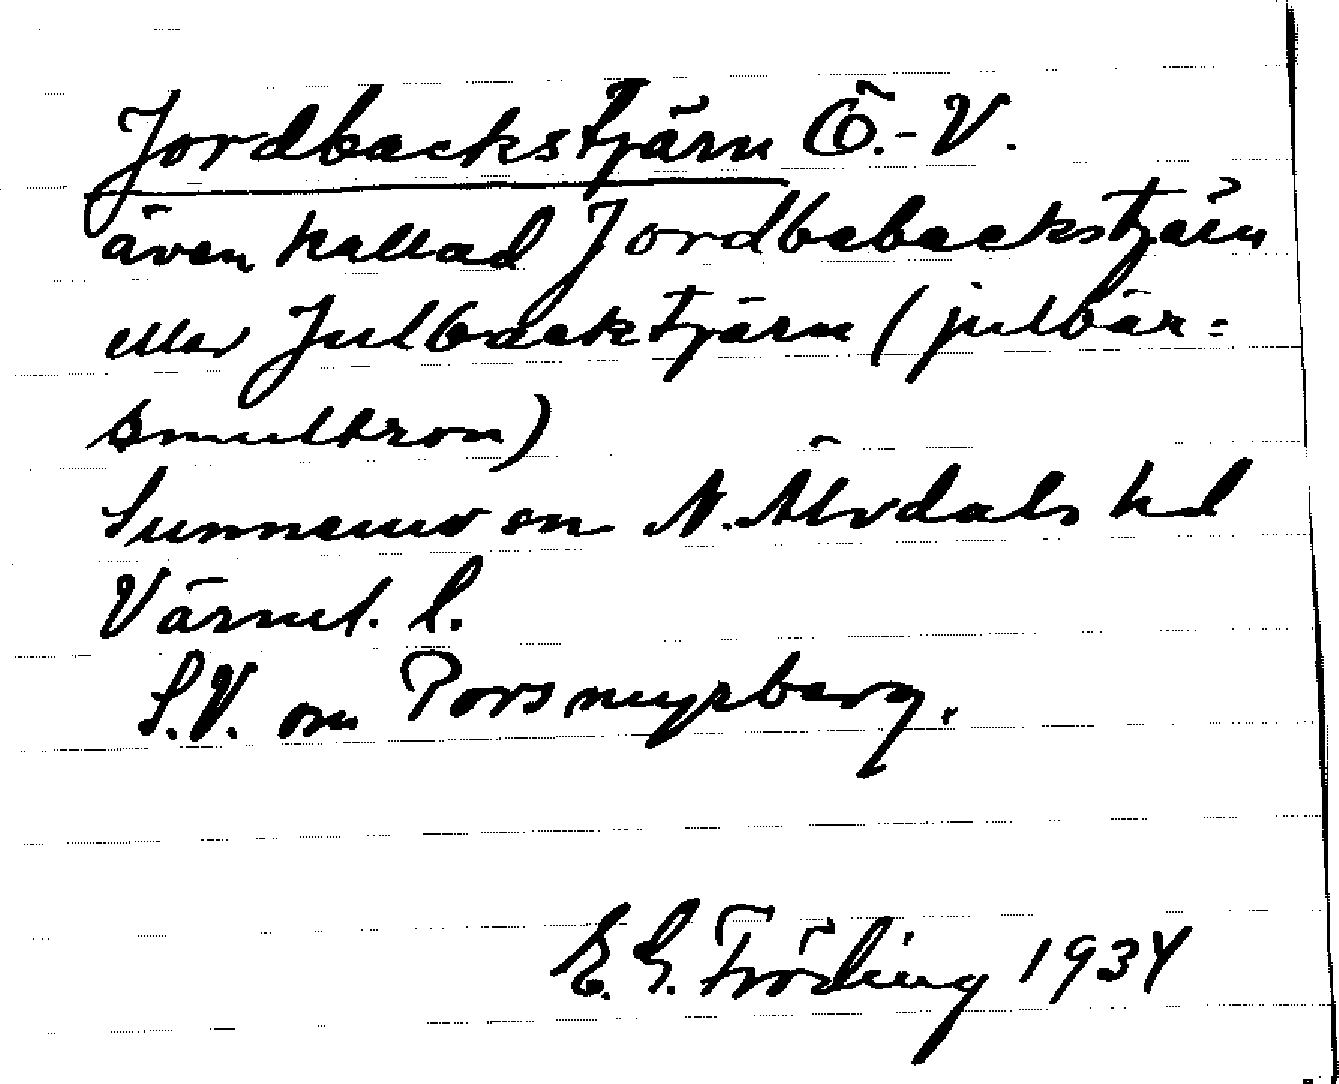 Jordbackstjärn Ö.-V.
även kallad Jordbebackstjärn
eller Julbacktjärn (julbär=
smultron)
Sunnemo sn N. Älvdals hd
Värml. l.
S.V. om Porsmyrberg.
E. G. Fröding 1934